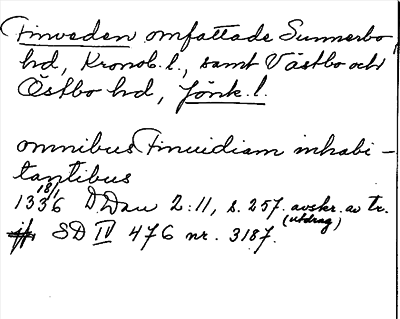 Finveden omfattade Sunnerbo
hd, Kronob. l., samt Västbo och
Östbo hd, Jönk. l.
omnibus Finuidiam inhabi-
tantibus
18/1
1336 DDan 2:11, s. 257. avskr. av tr.
(utdrag)
jfr SD IV 476 nr. 3187.